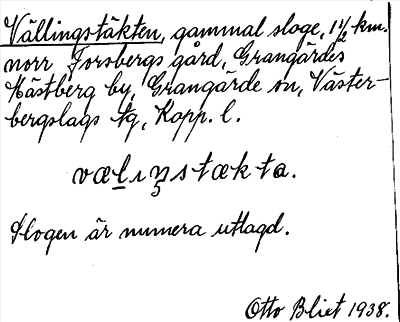 Vällingstäkten, gammal sloge, 1½ km.
norr Forsbergs gård, Grangärdes
Hästberg by, Grangärde sn, Väster-
bergslags tg, Kopp. l.
vælıŋstækta.
Slogen är numera utlagd.
Otto Bliet 1938.